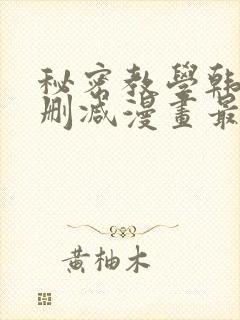 秘密教學韩
删减漫畫最
黄柚木